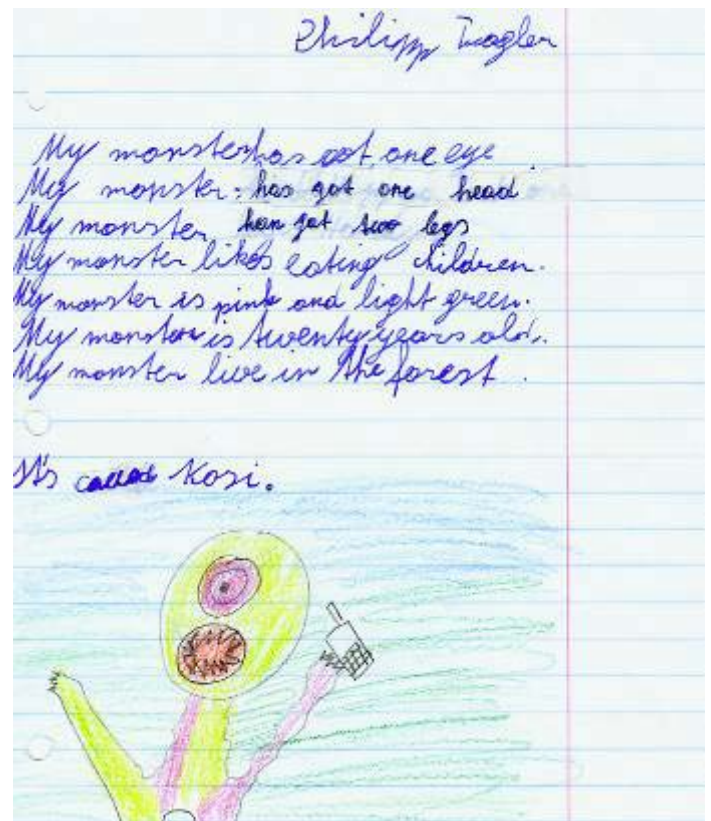 Philipp
My monster has got one eye
My monster has got one head
My monster has got two legs
My monster likes eating children.
My monster is pink and light green.
My monster is twenty years old.
My monster live in the forest.
It's called Kosi.